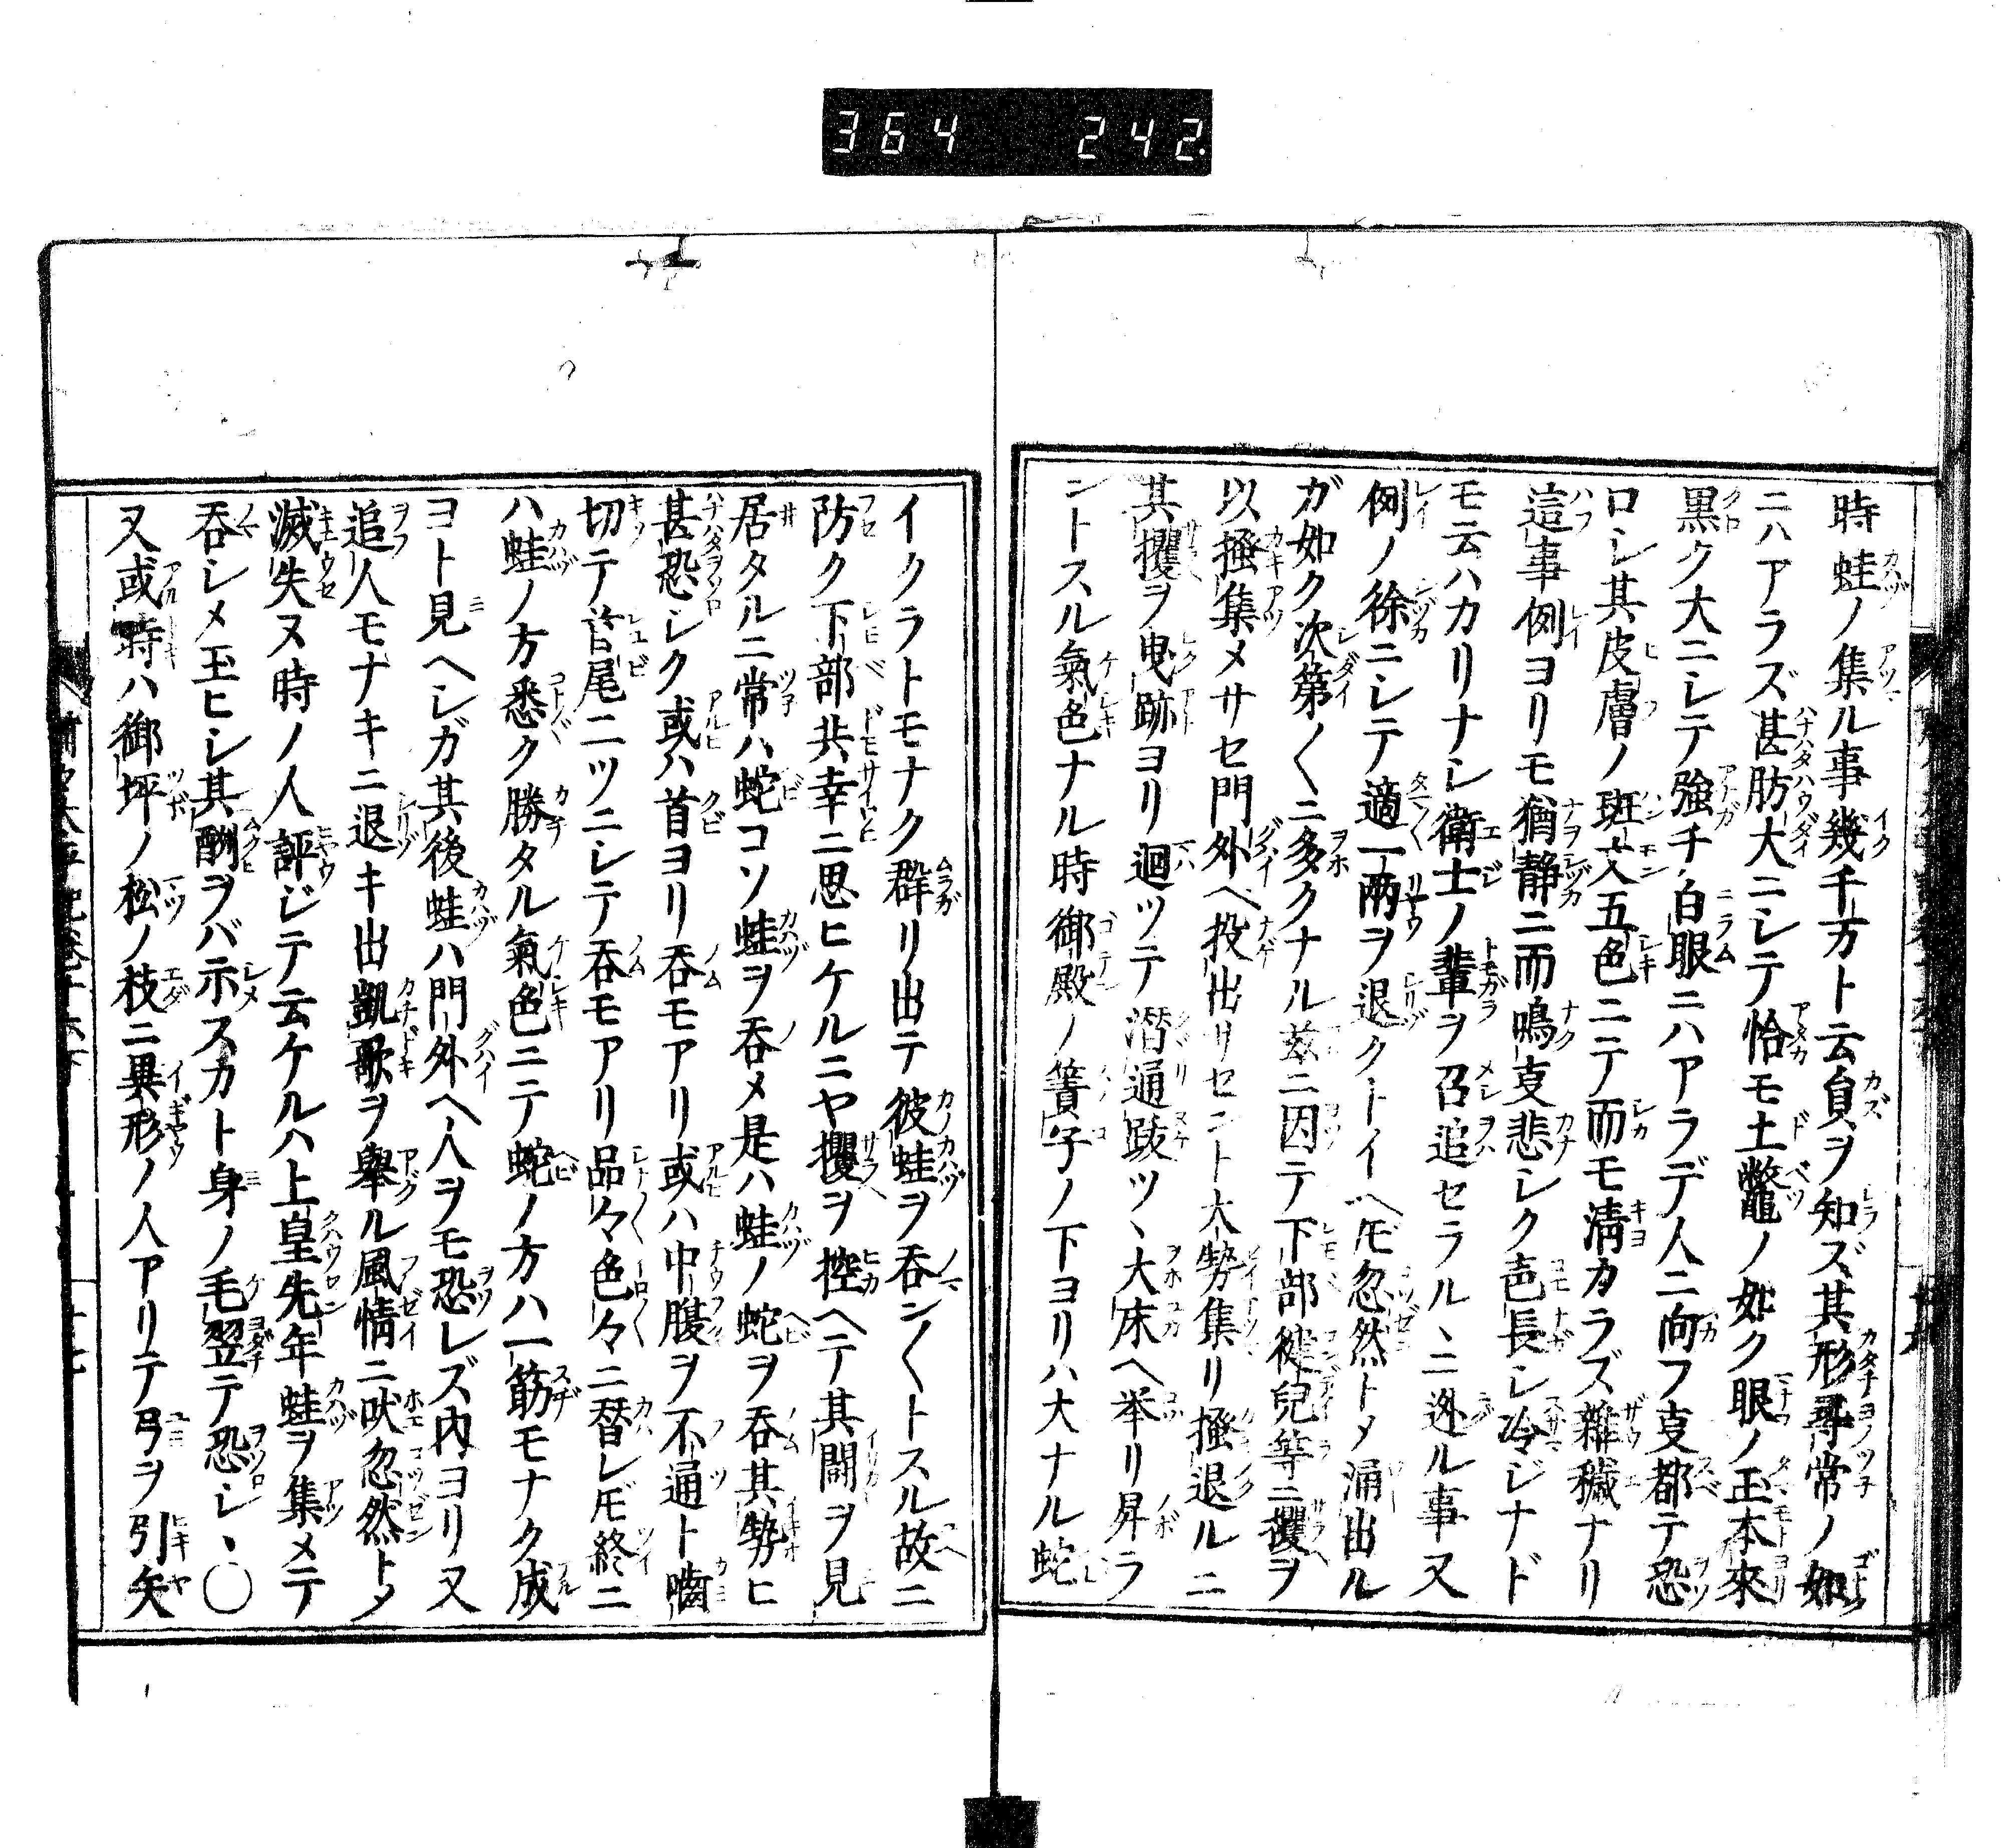 364 242.
時蛙ノ集ル事幾千万ト云員ヲ知ズ其形尋常ノ如
ニハアラズ甚肪大ニシテ恰モ土鼈ノ如ク眼ノ玉本來
黒ク大ニシテ強チ白眼ニハアラデ人ニ向フ叓都テ恐
ロシ其皮膚ノ斑文五色ニテ而モ淸カラズ雜穢ナリ
這事例ヨリモ猶静ニ而鳴叓悲シク声長シ冷ジナド
モ云ハカリナシ衛士ノ輩ヲ召追セラルヽニ迯ル事又
例ノ徐ニシテ適一兩ヲ退クトイヘ𪜈忽然トメ涌出ル
ガ如ク次第〱ニ多クナル茲ニ因テ下部健兒等ニ攫ヲ
以搔集メサセ門外ヘ投出サセント大勢集リ搔退ルニ
其攫ヲ曳跡ヨリ迴ツテ潜通跋ツヽ大床ヘ挙リ昇ラ
ントスル氣色ナル時御殿ノ簀子ノ下ヨリハ大ナル蛇
イクラトモナク群リ出テ彼蛙ヲ呑ン〱トスル故ニ
防ク下部共幸ニ思ヒケルニヤ攫ヲ控ヘテ其鬪ヲ見
居タルニ常ハ蛇コソ蛙ヲ呑メ是ハ蛙ノ蛇ヲ呑其勢ヒ
甚恐シク或ハ首ヨリ呑モアリ或ハ中腹ヲ不通ト嚙
切テ首尾二ツニシテ呑モアリ品々色々ニ替レ𪜈終ニ
ハ蛙ノ方悉ク勝タル氣色ニテ蛇ノ方ハ一筋モナク成
ヨト見ヘシガ其後蛙ハ門外ヘ人ヲモ恐レズ内ヨリ又
追人モナキニ退キ出凱歌ヲ舉ル風情ニ吠忽然トメ
滅失ヌ時ノ人評ジテ云ケルハ上皇先年蛙ヲ集メテ
呑シメ玉ヒシ其酬ヲバ示スカト身ノ毛翌テ恐シヽ〇
又或時ハ御坪ノ松ノ枝ニ異形ノ人アリテ弓ヲ引矢